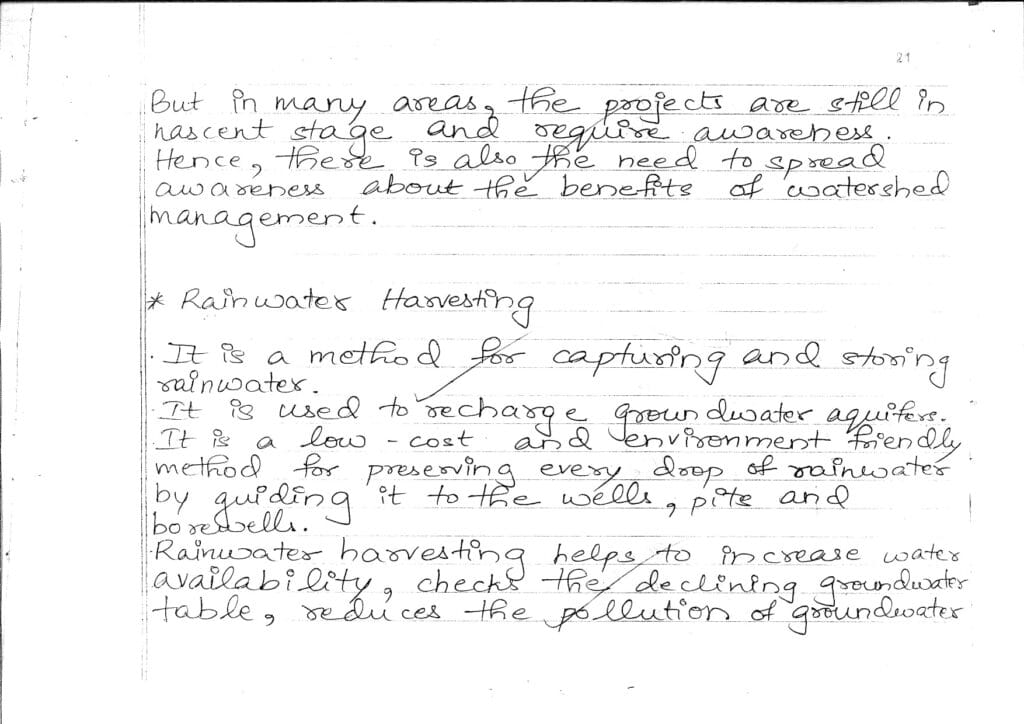 21
But in many areas, the projects are still in
nascent stage and require awareness.
Hence, there is also the need to spread
awareness about the benefits of watershed
management.
* Rainwater Harvesting
. It is a method for capturing and storing
rainwater.
. It is used to recharge groundwater aquifers.
. It is a low-cost and environment friendly
method for preserving every drop of rainwater
by guiding it to the wells, pits and
borewells.
. Rainwater harvesting helps to increase water
availability, checks the declining groundwater
table, reduces the pollution of groundwater